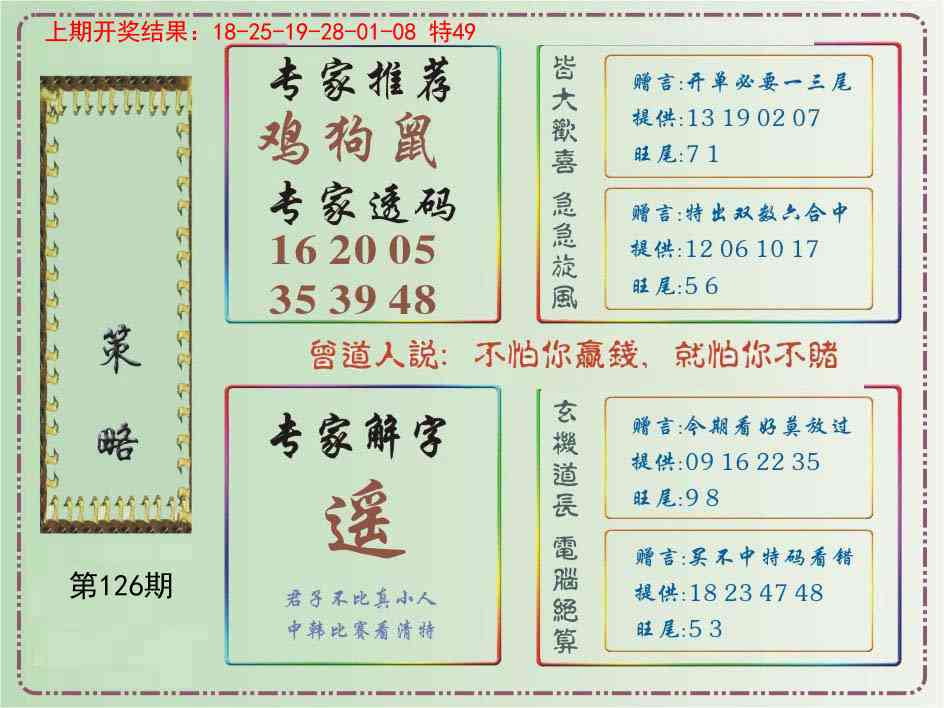 上期开奖结果：18-25-19-28-01-08 特49
策略
第126期
专家推荐
鸡狗鼠
专家透码
16 20 05
35 39 48
皆大歡喜
赠言:开单必要一三尾
提供:13 19 02 07
旺尾:7 1
急急旋風
赠言:特出双数六合中
提供:12 06 10 17
旺尾:5 6
曾道人説: 不怕你贏錢, 就怕你不賭
专家解字
遥
君子不比真小人
中韩比赛看清特
玄機道長
赠言:今期看好莫放过
提供:09 16 22 35
旺尾:9 8
電腦絕算
赠言:买不中特码看错
提供:18 23 47 48
旺尾:5 3